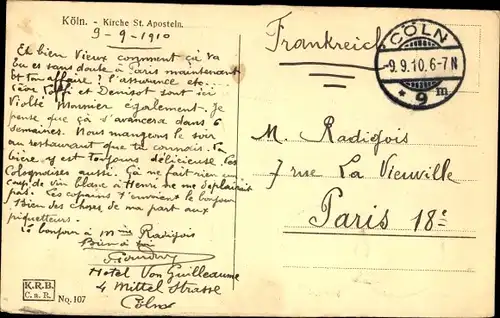 Köln. - Kirche St. Aposteln.
9-9-1910
Eh bien Vieux comment ça va
tu es sans doute à Paris maintenant
et ton affaire? l'assurance etc...
et Denizot sont ici
Violte Monnier également. Je
pense que ça s'avancera dans 6
semaines. Nous mangeons le soir
au restaurant que tu connais. La
bière y est toujours délicieuse. Les
Colognoises aussi. Ça ne fait rien un
coup de vin blanc à Henri ne me déplairait
pas. Les copains t'envoient le bonjour
Bien des choses de ma part aux
piquetteurs.
Le bonjour à Mme Radigois
Bien à toi
Hotel Von Guilleaume
4 Mittel Strasse
Cöln
K.R.B.
C. a. R.
No. 107
Frankreich
CÖLN
-9.9.10.6-7N
* 9 m.
M. Radigois
7 rue La Vieuville
Paris 18e